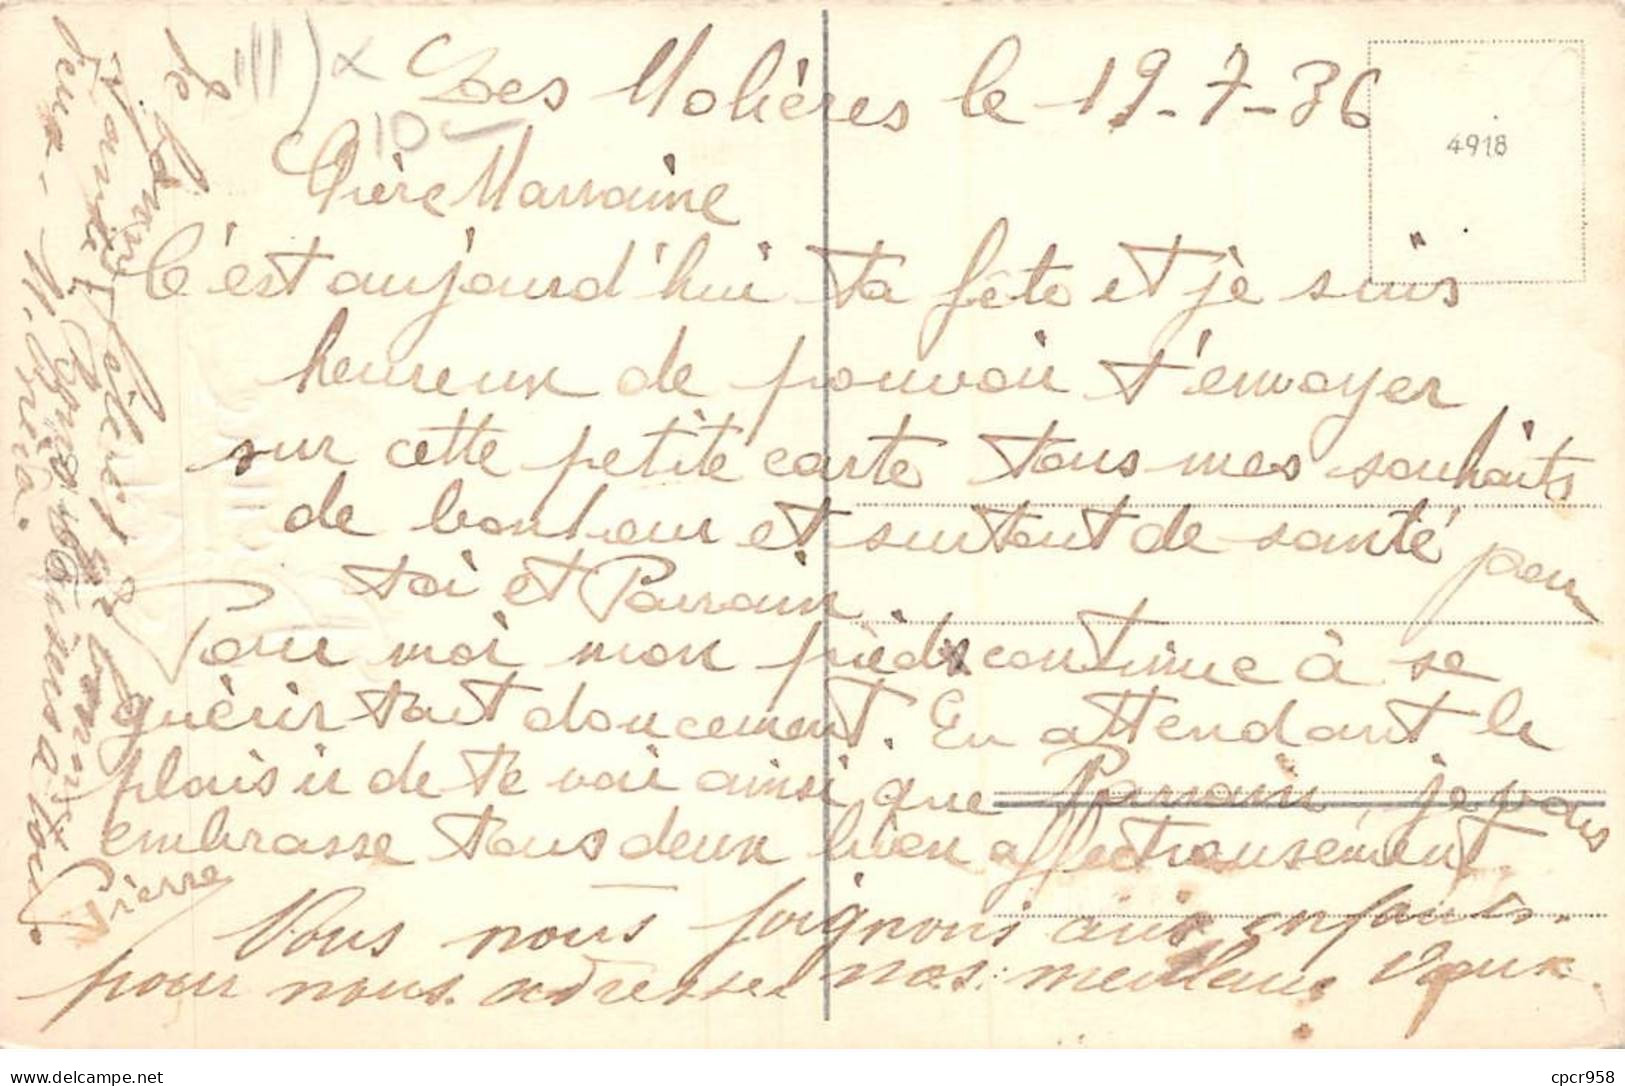 Les Molières le 19-7-36
10
4918
Chère Marraine
C'est aujourd'hui ta fête et je suis
heureux de pouvoir t'envoyer
sur cette petite carte tous mes souhaits
de bonheur et surtout de santé pour
toi et Parrain
Pour moi mon pied continue à se
guérir tout doucement. En attendant le
plaisir de te voir ainsi que Parrain, je vous
embrasse tous deux bien affectueusement
Pierre
Vous nous joignons aux enfants.
pour nous adresser nos meilleurs Vœux.
Je
Bons baisers a tous
delcampe.net
cpcr958